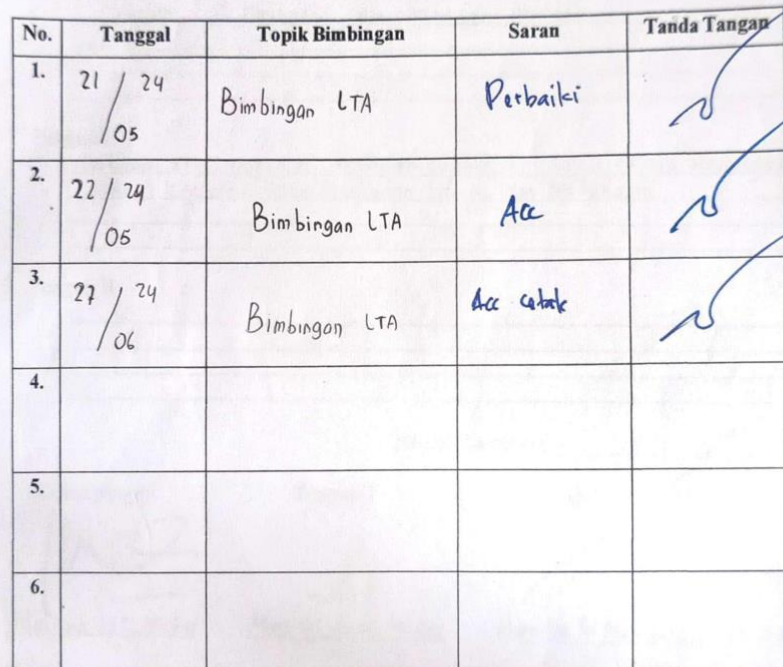 No. Tanggal Topik Bimbingan Saran Tanda Tangan
1. 21/05 24 Bimbingan LTA Perbaiki
2. 22/05 24 Bimbingan LTA Acc
3. 27/06 24 Bimbingan LTA Acc cetak
4.
5.
6.